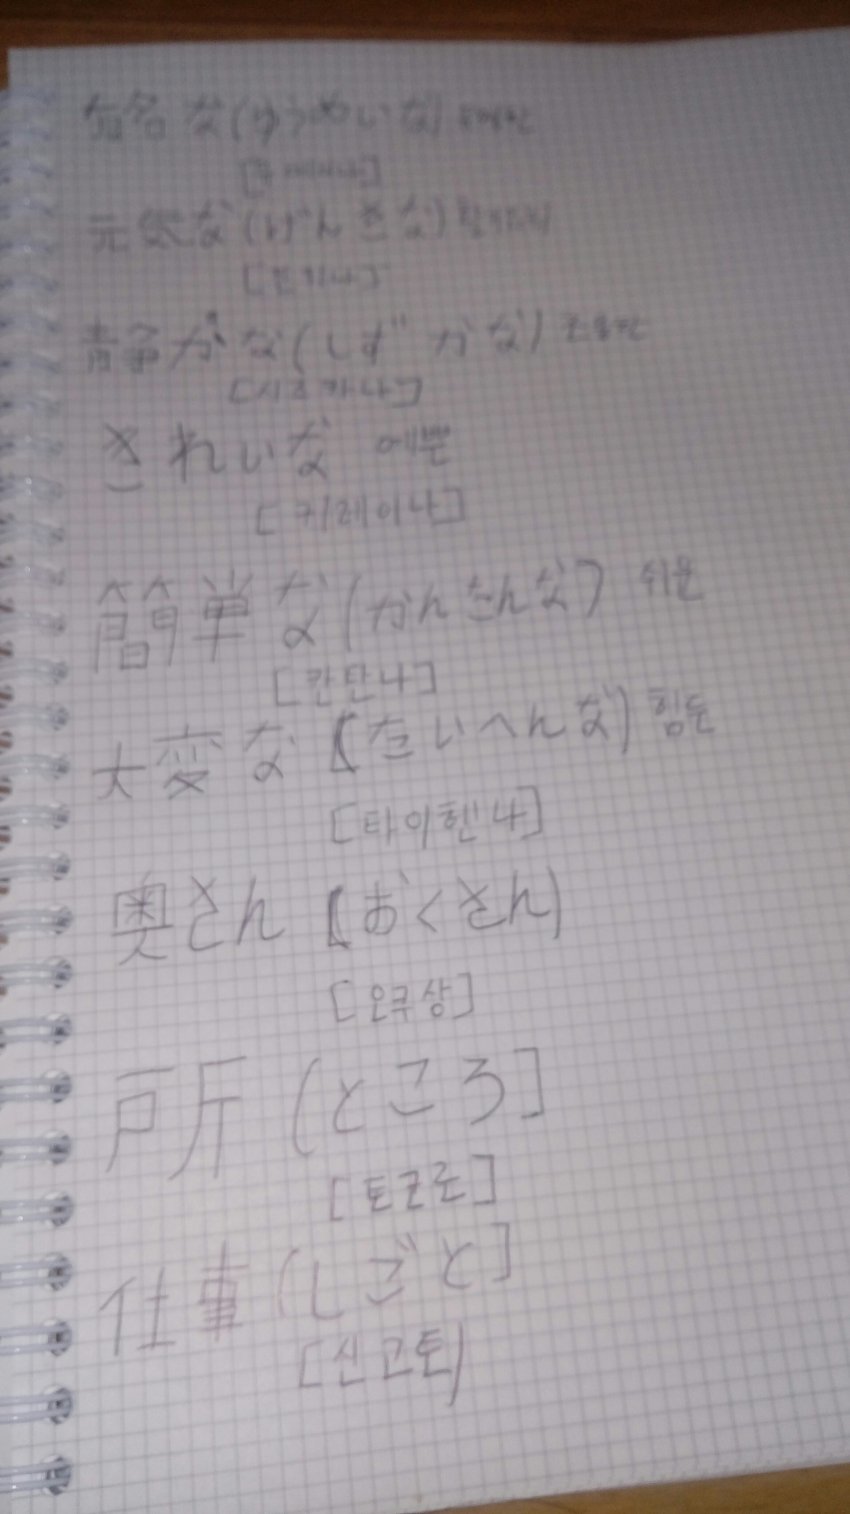 有名な(ゆうめいな) 유명한
[유메이나]
元気な(げんきな) 힘찬
[겐키나]
静がな(しずがな) 조용한
[시즈카나]
きれいな 예쁜
[키레이나]
簡単な(かんたんな) 쉬운
[칸탄나]
大変な【たいへんな) 힘든
[타이헨나]
奥さん【おくさん)
[오쿠상]
所(ところ]
[토코로]
仕事(しごと]
[신고토)